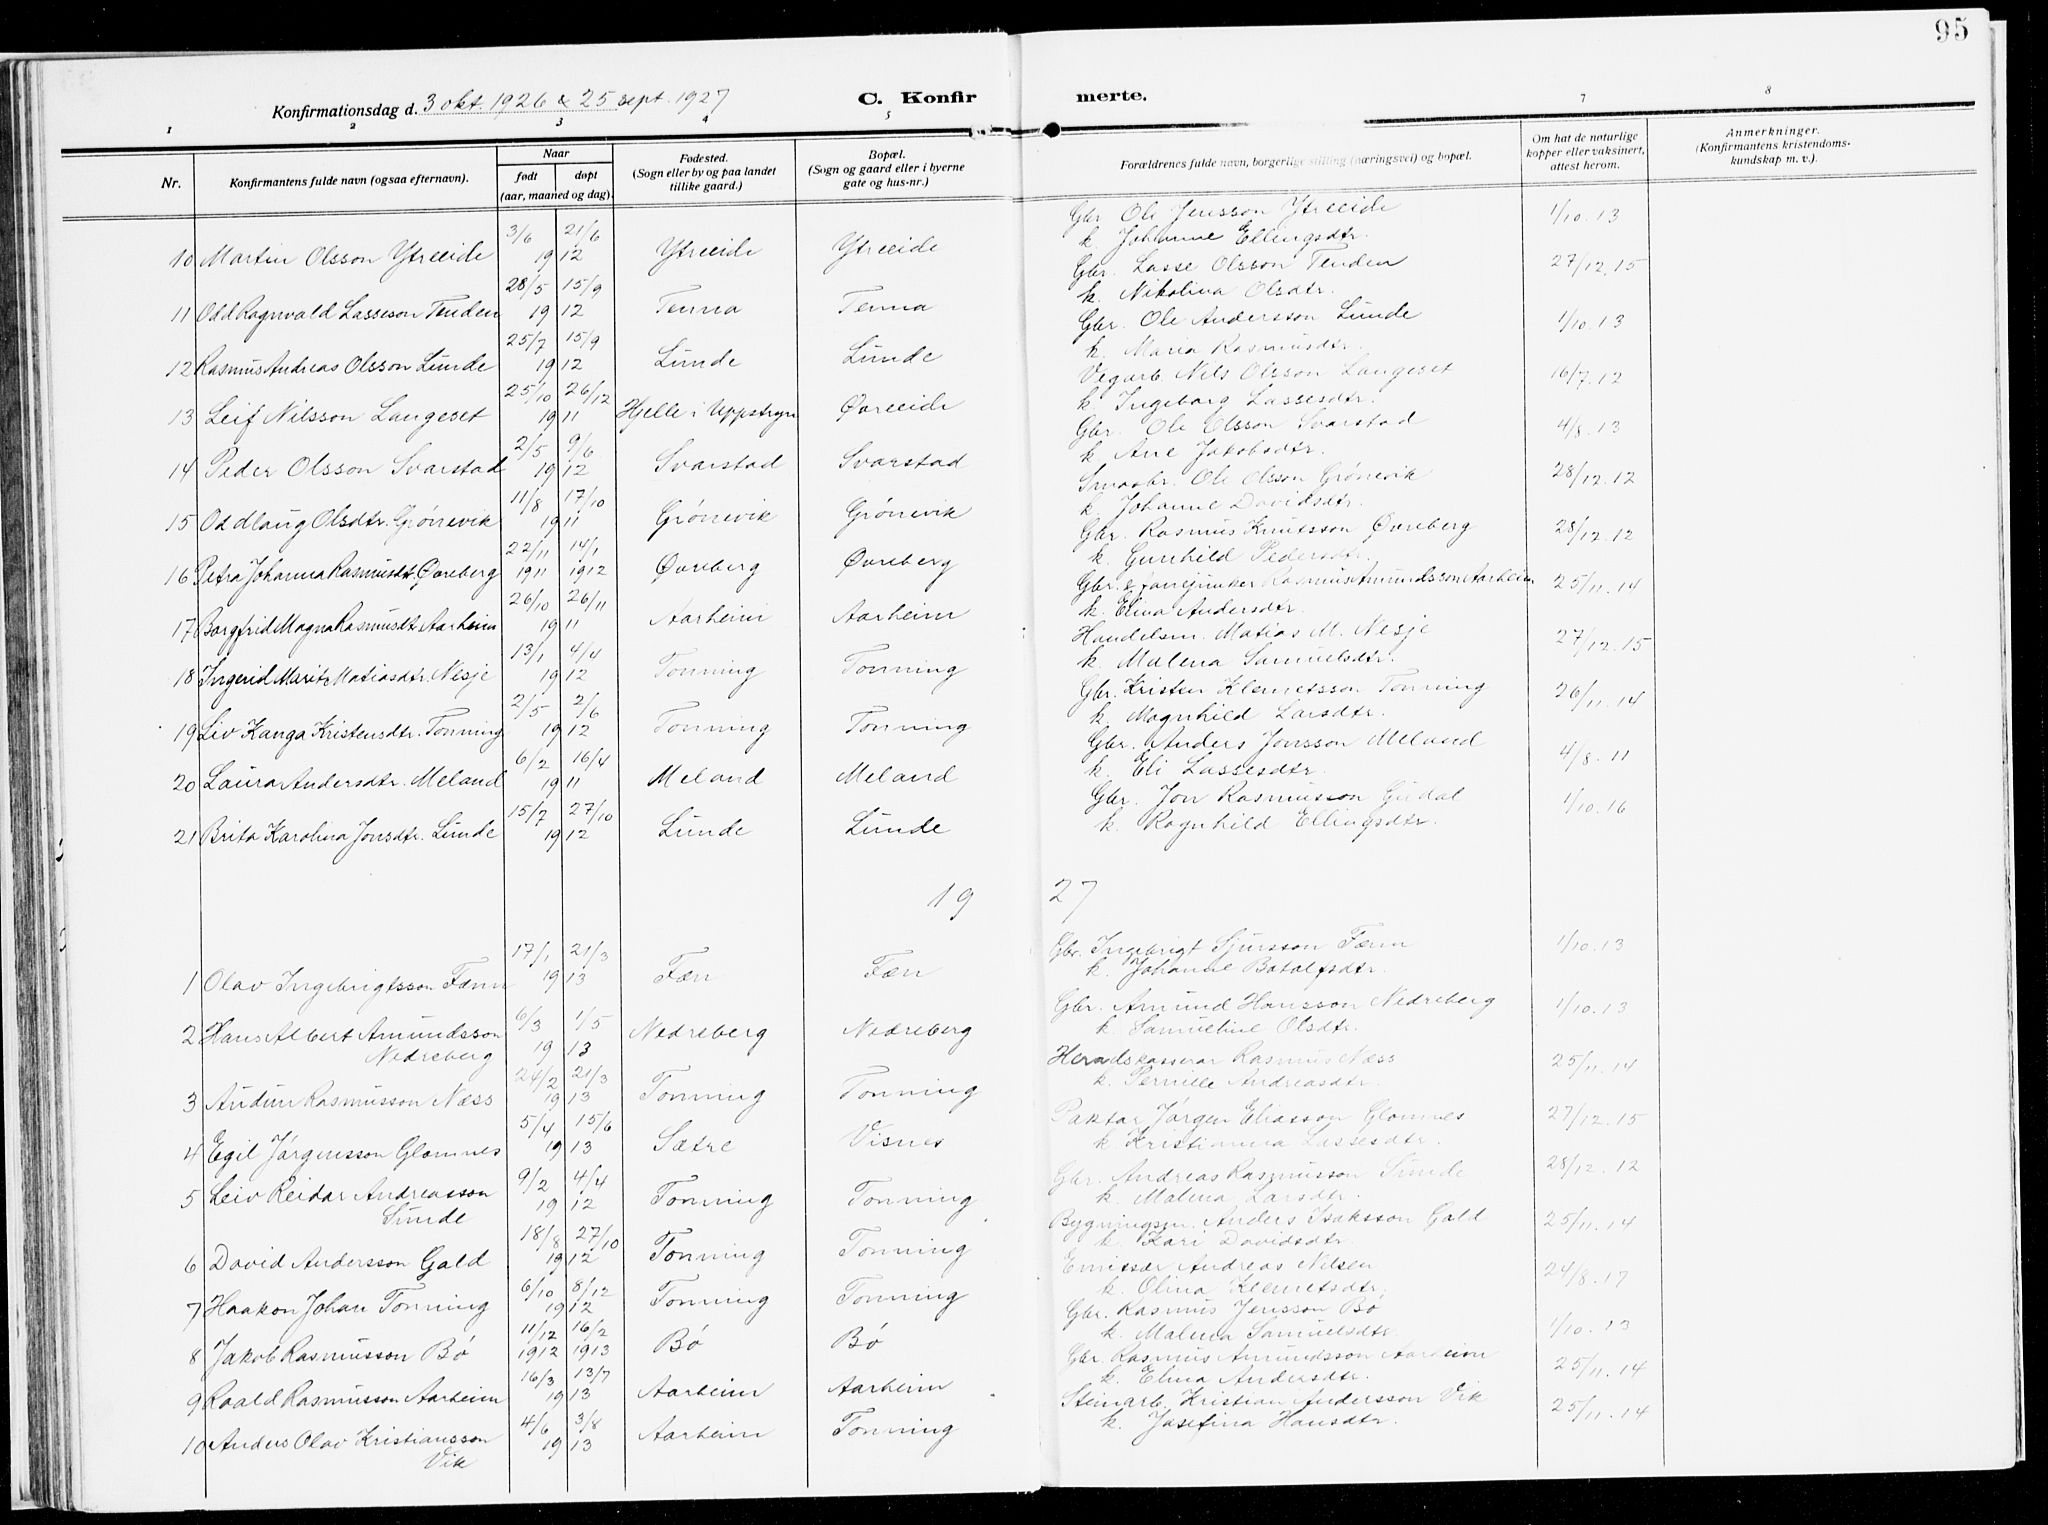 95
Konfirmationsdag d. 3 okt. 1926 & 25 sept. 1927
C. Konfir merte.
1 2 3 4 5 7 8
Nr.
Konfirmantens fulde navn (ogsaa efternavn).
Naar
født døpt
(aar, maaned og dag).
Fødested.
(Sogn eller by og paa landet
tillike gaard.)
Bopæl.
(Sogn og gaard eller i byerne
gate og hus-nr.)
Forældrenes fulde navn, borgerlige stilling (næringsvei) og bopæl.
Om hat de naturlige
kopper eller vaksinert,
attest herom.
Anmerkninger.
(Konfirmantens kristendoms-
kundskap m. v.).
10 Martin Olsson Ytreeide 3/6 21/6 1912 Ytreeide Ytreeide Gbr. Ole Jensson Ytreeide 1/10.13
k. Johanne Ellingsdtr.
11 Odd Ragnvald Lasseson Tenden 28/5 15/9 1912 Tenna Tenna Gbr. Lasse Olsson Tenden 27/12.15
k. Nikolina Olsdtr.
12 Rasmus Andreas Olsson Lunde 25/7 15/9 1912 Lunde Lunde Gbr. Ole Andersson Lunde 1/10.13
k. Maria Rasmusdtr.
13 Leif Nilsson Langeset 25/10 26/12 1911 Hjelle i Uppstryn Øvreeide Vegarb. Nils Olsson Langeset 16/7.12
k. Ingeborg Lassesdtr.
14 Peder Olsson Svarstad 2/5 9/6 1912 Svarstad Svarstad Gbr. Ole Olsson Svarstad 4/8.13
k. Ane Jakobsdtr.
15 Oddlaug Olsdtr. Grönevik 11/8 17/10 1911 Grönevik Grönevik Smaabr. Ole Olsson Grönevik 28/12.12
k. Johanne Davidsdtr.
16 Petra Johanna Rasmusdt. Øvreberg 22/11 1911 14/1 1912 Øvreberg Øvreberg Gbr. Rasmus Knutsson Øvreberg 28/12.12
k. Gunhild Pedersdtr.
17 Borgfrid Magna Rasmusdt. Aarheim 26/10 26/11 1911 Aarheim Aarheim Gbr. & fanejunker Rasmus Amundsson Aarheim 25/11.14
k. Elina Andersdtr.
18 Ingerid Marit Matiasdtr. Nesje 13/1 4/4 1912 Tonning Tonning Handelsm. Matias M. Nesje 27/12.15
k. Malena Samuelsdtr.
19 Liv Kanga Kristensdtr. Tonning 2/5 2/6 1912 Tonning Tonning Gbr. Kristen Klemetsson Tonning 26/11.14
k. Magnhild Larsdtr.
20 Laura Andersdtr. Meland 6/2 16/4 1911 Meland Meland Gbr. Anders Jonsson Meland 4/8.11
k. Eli Lassesdtr.
21 Brita Karolina Jonsdtr. Lunde 15/7 27/10 1912 Lunde Lunde Gbr. Jon Rasmusson 1/10.16
k. Ragnhild Ellingsdtr.
19 27
1 Olav Ingebrigtsson Fænn 17/1 21/3 1913 Fæn Fæn Gbr. Ingebrigt Sjursson Fænn 1/10.13
k. Johanne Botolfsdtr.
2 Hans Albert Amundsson 6/3 1/5 1913 Nedreberg Nedreberg Gbr. Amund Hansson Nedreberg 1/10.13
Nedreberg k. Samueline Olsdtr.
3 Audun Rasmusson Næss 24/2 21/3 1913 Tonning Tonning Heradskasserar Rasmus Næss 25/11.14
k. Pernille Andreasdtr.
4 Egil Jörgensson Glomnes 5/4 15/6 1913 Sætre Visnes Paktar Jörgen Eliasson Glomnes 27/12.15
k. Kristianna Lassesdtr.
5 Leiv Reidar Andreasson 9/2 4/4 1912 Tonning Tonning Gbr. Andreas Rasmusson Sunde 28/12.12
Sunde k. Malena Larsdtr.
6 David Andersson Gald 18/8 27/10 1912 Tonning Tonning Bygningsm. Anders Isaksson Gald 25/11.14
k. Kari Davidsdtr.
7 Haakon Johan Tonning 6/10 8/12 1912 Tonning Tonning Emissær Andreas Nilsen 24/8.17
k. Olina Klemetsdtr.
8 Jakob Rasmusson Bö 11/12 1912 16/2 1913 Bö Bö Gbr. Rasmus Jensson Bö 1/10.13
k. Malena Samuelsdtr.
9 Roald Rasmusson Aarheim 16/3 13/7 1913 Aarheim Aarheim Gbr. Rasmus Amundsson Aarheim 25/11.14
k. Elina Andersdtr.
10 Anders Olav Kristiansson 4/6 3/8 1913 Aarheim Tonning Steinarb. Kristian Andersson Vik 25/11.14
Vik k. Josefina Hansdtr.